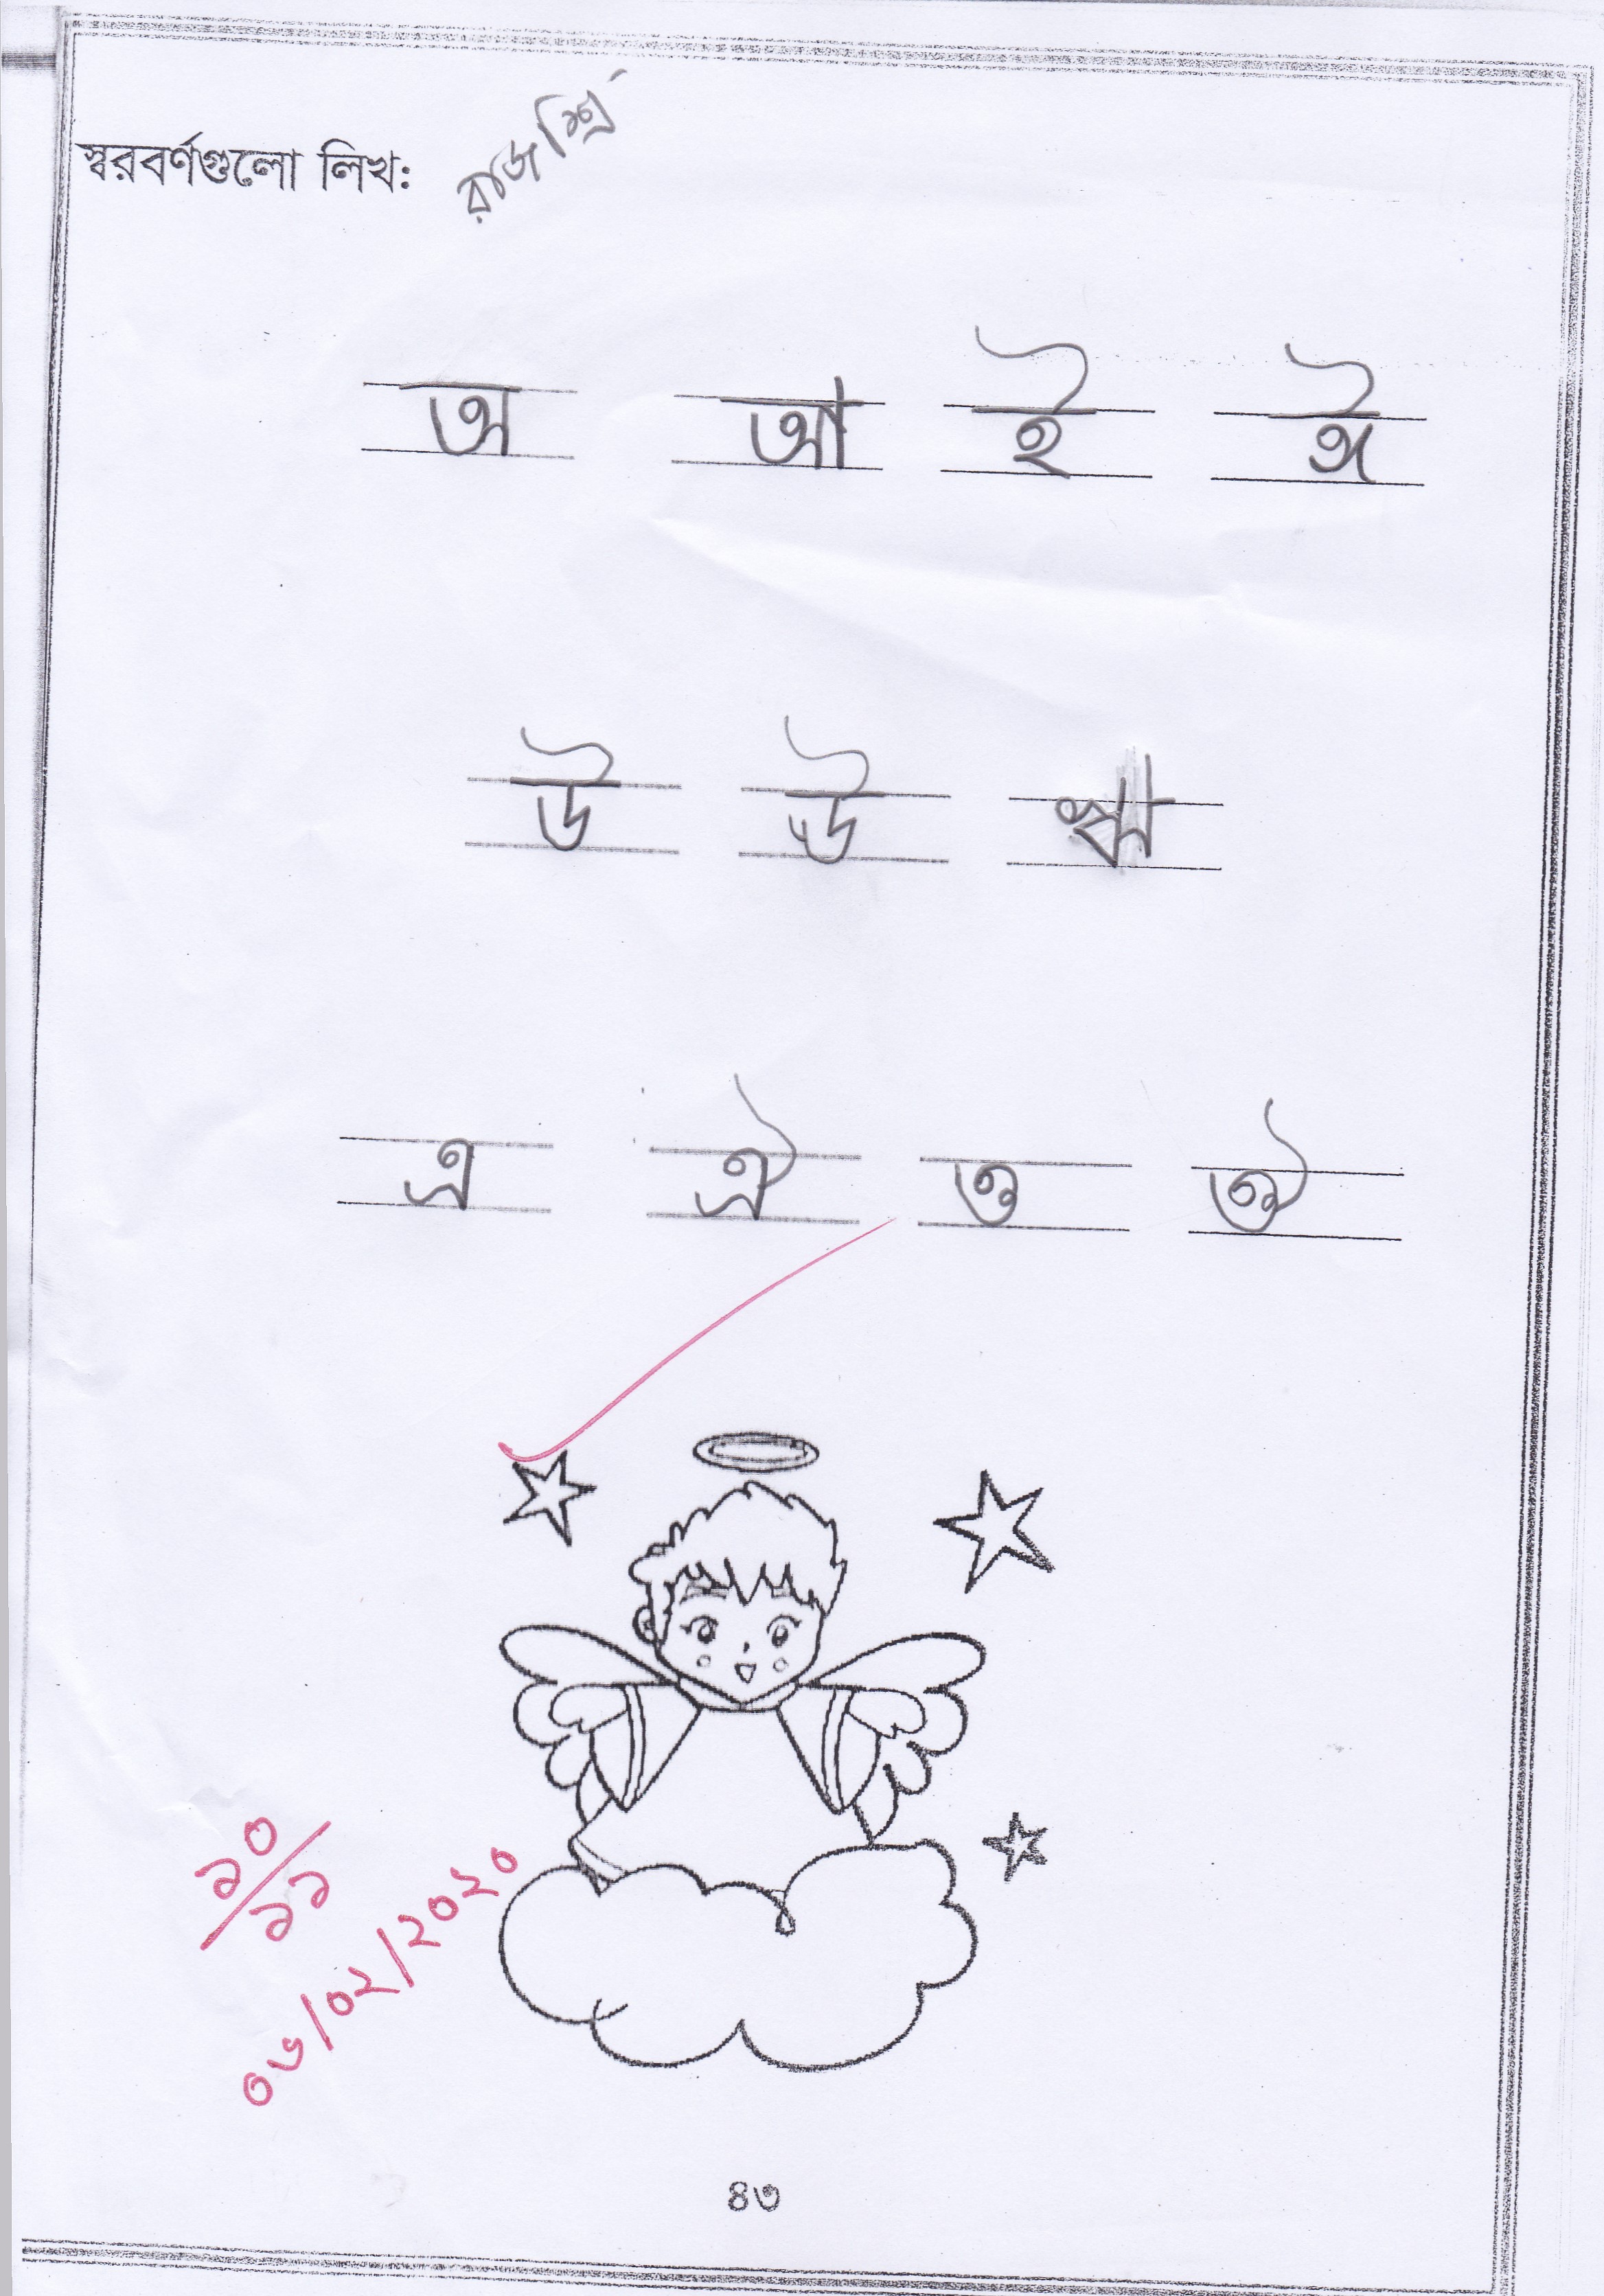 স্বরবর্ণগুলো লিখ:
রাজশ্রি
অ আ ই ঈ
উ ঊ ঋ
এ ঐ ও ঔ
১০/১১
০৬/০২/২০২০
৪৩